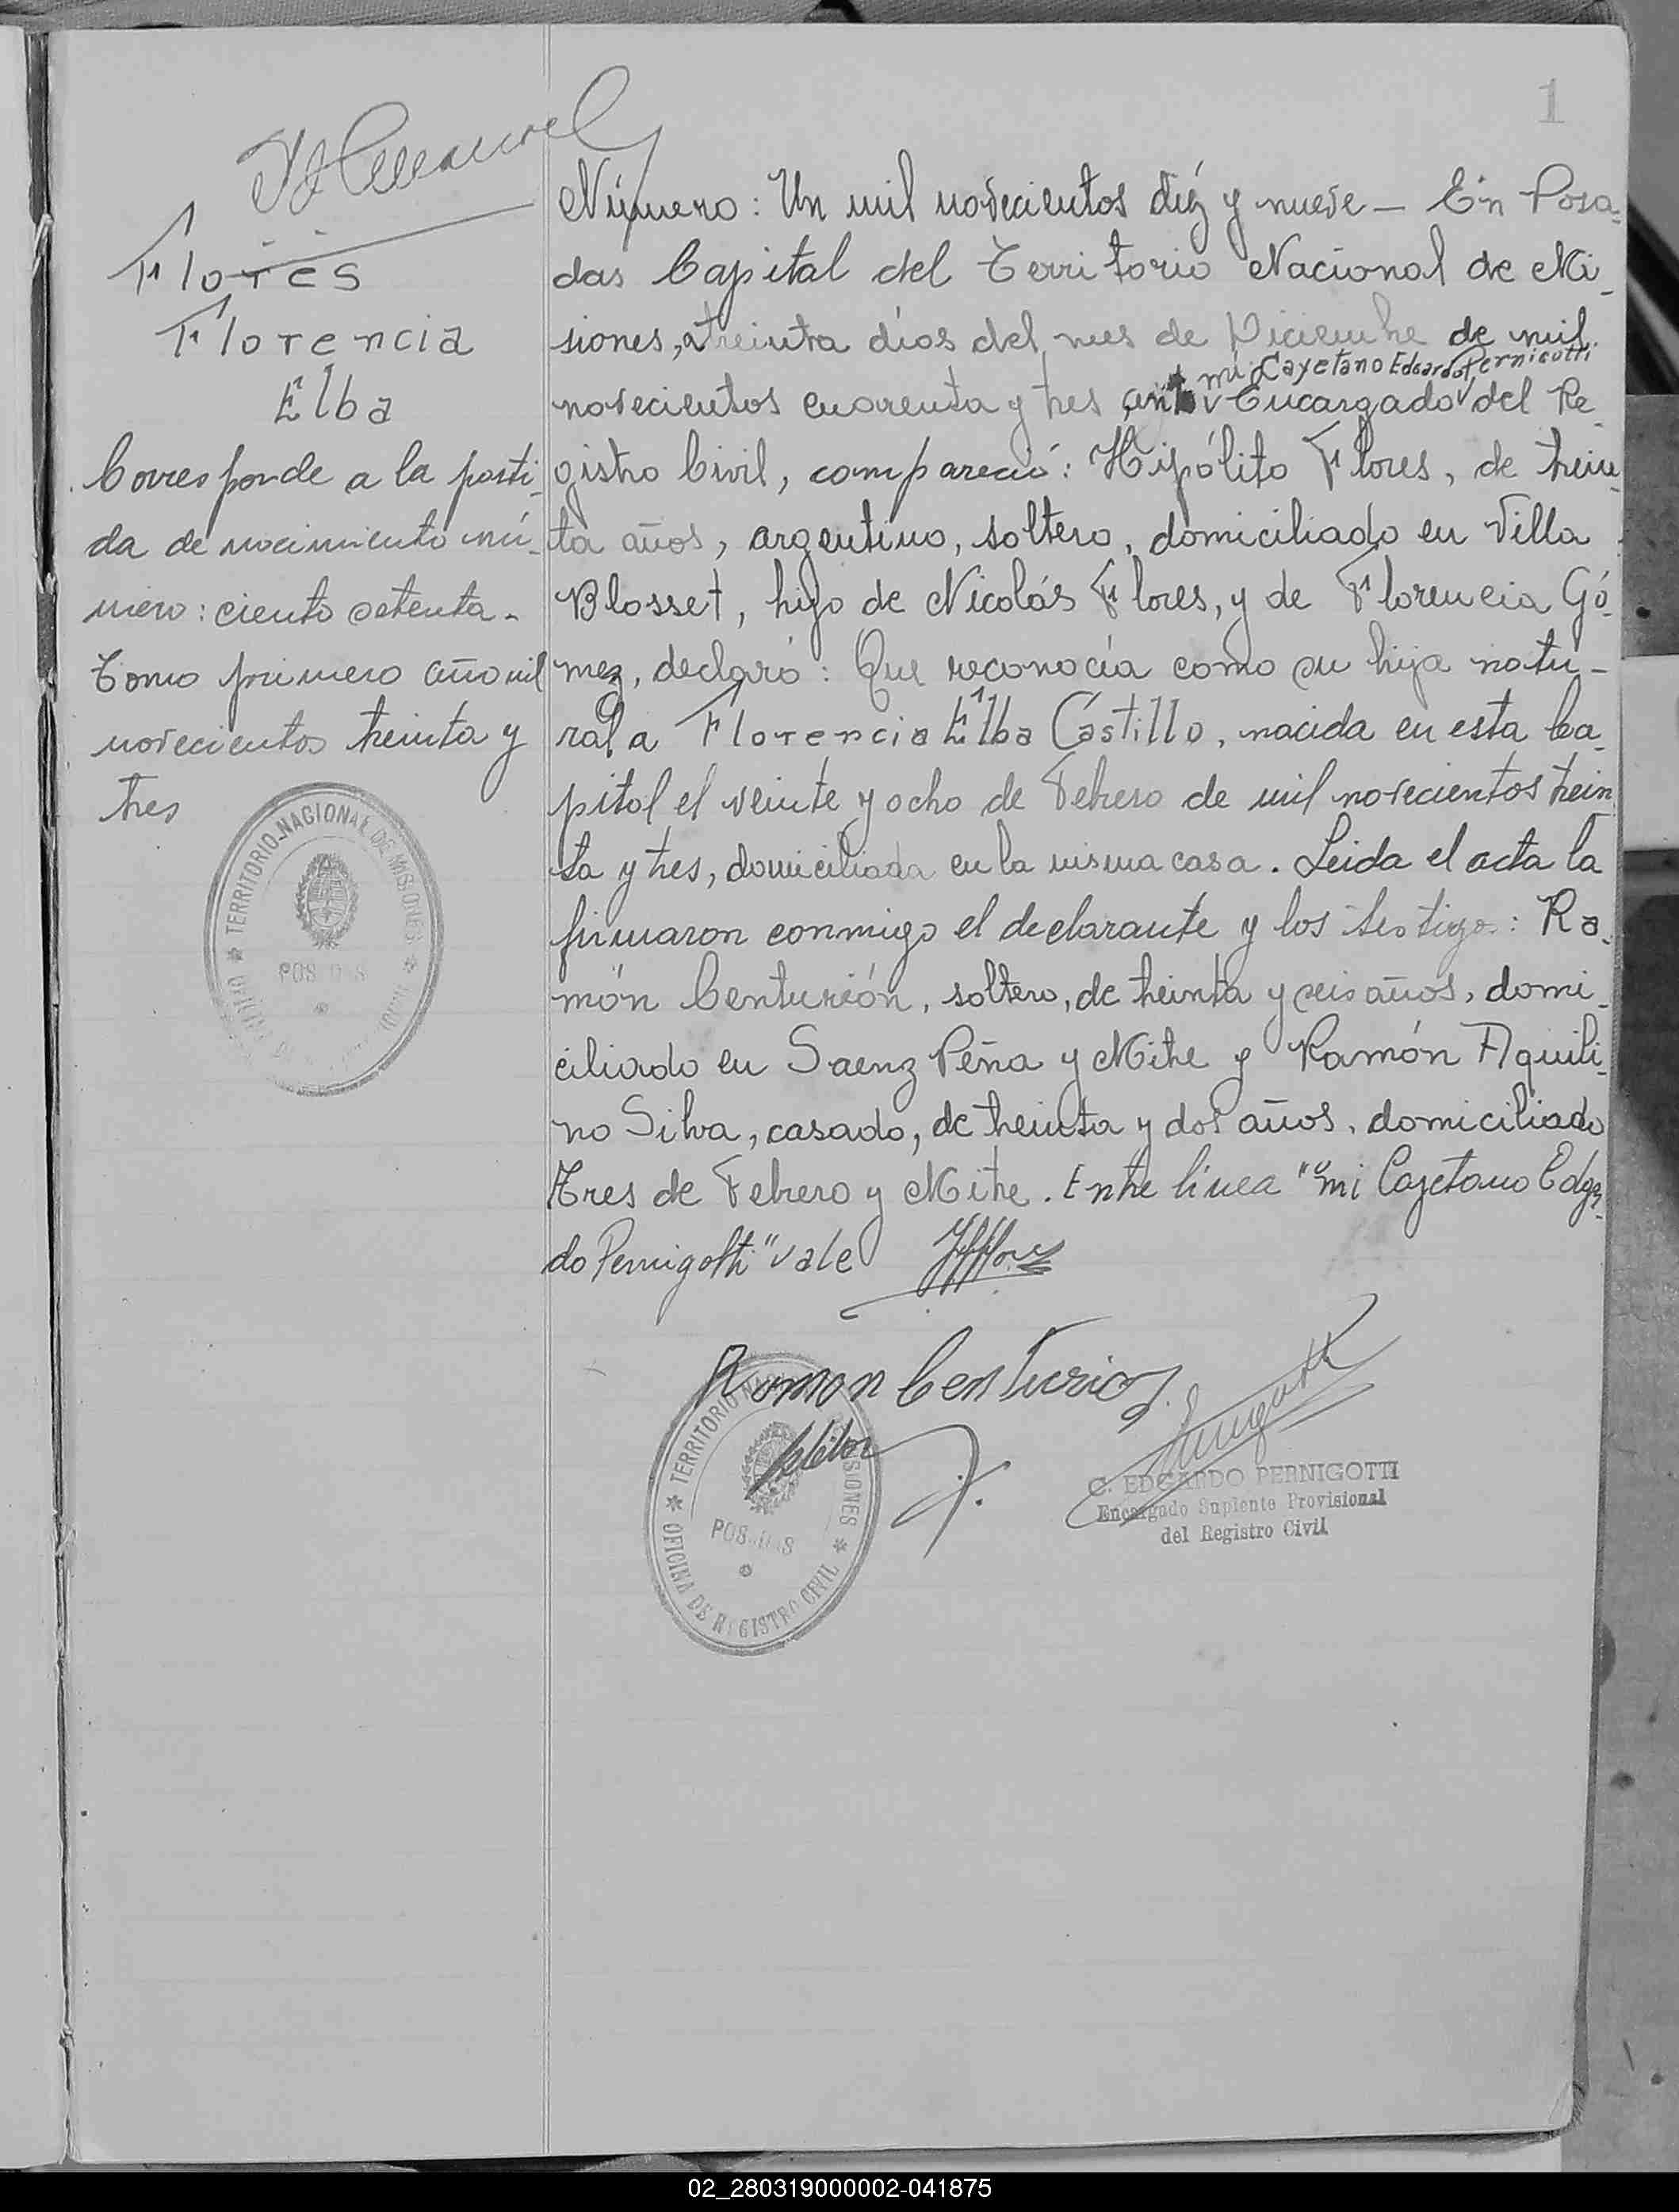 1
Flores
Florencia
Elba
Corresponde a la parti-
da de nacimiento nú-
mero: ciento setenta-
Tomo primero año mil
novecientos treinta y
tres
TERRITORIO NACIONAL DE MISIONES
POSADAS
Número: Un mil novecientos diéz y nueve — En Posa=
das Capital del Territorio Nacional de Mi-
siones, a treinta días del mes de Diciembre de mil
mí Cayetano Edgardo Pernigotti
novecientos cuarenta y tres ante Encargado del Re-
gistro Civil, compareció: Hipólito Flores, de trein-
ta años, argentino, soltero, domiciliado en Villa
Blosset, hijo de Nicolás Flores, y de Florencia Gó-
mez, declaró: Que reconocía como su hija natu-
ral a Florencia Elba Castillo, nacida en esta Ca-
pital el veinte y ocho de Febrero de mil novecientos trein
ta y tres, domiciliada en la misma casa. Leida el acta la
firmaron conmigo el declarante y los testigos: Ra-
món Centurión, soltero, de treinta y seis años, domi-
ciliado en Saenz Peña y Mitre y Ramón Aquili-
no Silva, casado, de treinta y dos años, domiciliado
Tres de Febrero y Mitre. Entre linea "mi Cayetano Edgar-
do Pernigotti" vale
Ramon Centurion
TERRITORIO NACIONAL DE MISIONES
POSADAS
OFICINA DE REGISTRO CIVIL
C. EDGARDO PERNIGOTTI
Encargado Suplente Provisional
del Registro Civil
02_280319000002-041875